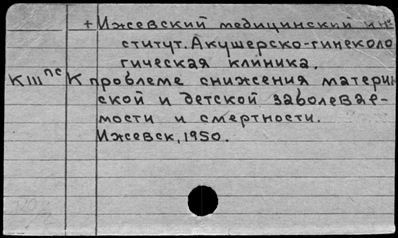 + Ижевский медицинский ин-
ститут. Акушерско-гинеколо
гическая клиника.
КIII пс К проблеме снижения материн
ской и детской заболевае-
мости и смертности.
Ижевск, 1950.